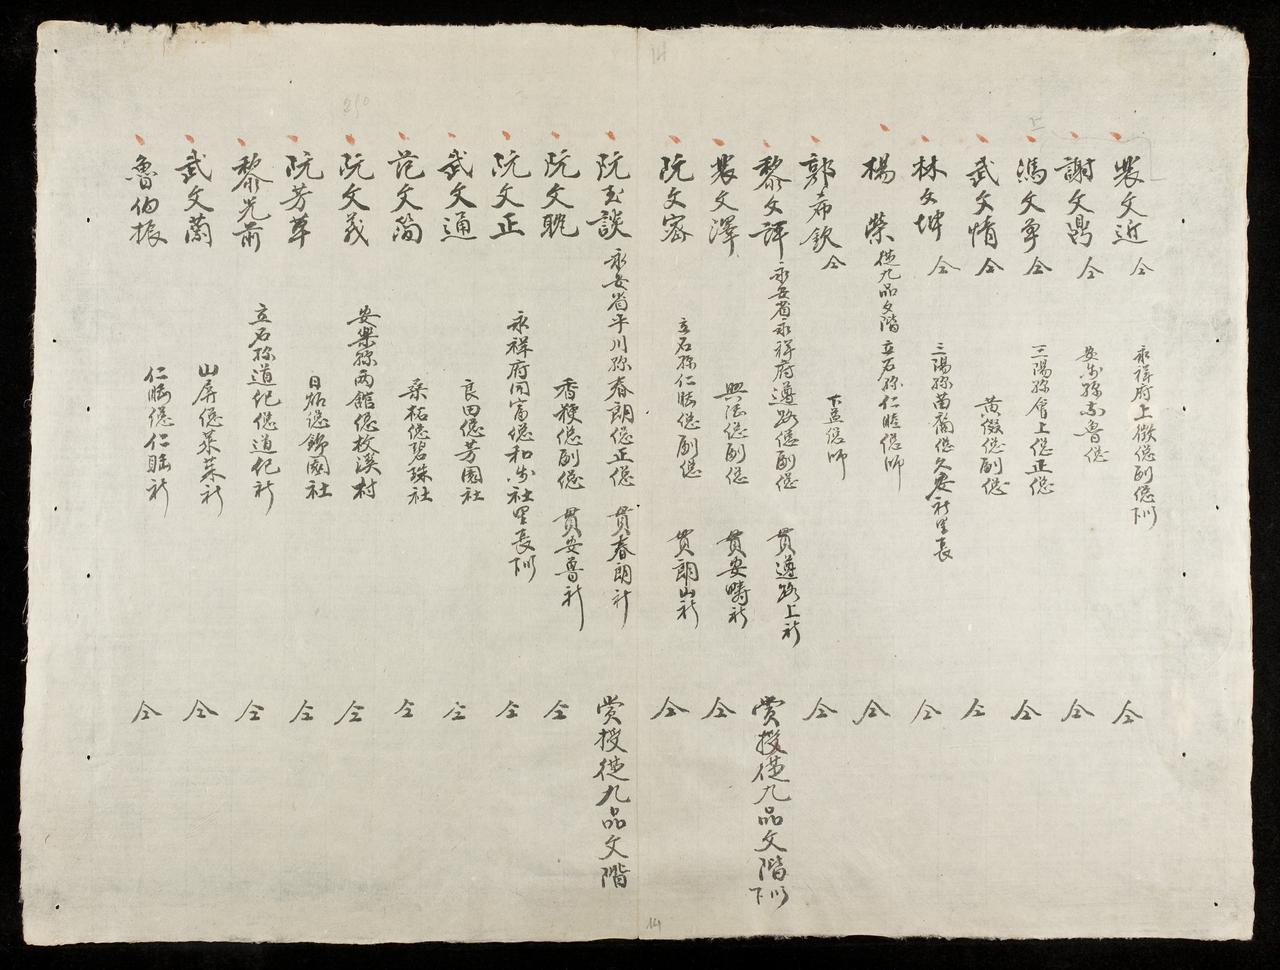 裴文近 仝 永祥府上徵總副總 以下 仝
謝文鼎 仝 安樂縣 魯總 仝
馮文 仝 三陽縣會上總正總 仝
武文情 仝 黃 總副總 仝
林文坤 仝 三陽縣苗 總久安社里長 仝
楊 榮 從九品文階 立石縣仁睦總師 仝
郭希欽 仝 下 總師 仝
黎文評 永安省永祥府遵路總副總 貫遵路上社 賞授從九品文階 以下
裴文澤 興 總副總 貫安疇社 仝
阮文密 立石縣仁睦總副總 貫朗山社 仝
阮玉談 永安省平川縣春朗總正總 貫春朗社 賞授從九品文階
阮文聰 香粳總副總 貫安魯社 仝
阮文正 永祥府同富總和 社里長 以下 仝
武文通 良田總芳園社 仝
范文簡 桑柘總碧珠社 仝
阮文義 安樂縣兩館總 溪村 仝
阮芳草 日 總錦園社 仝
黎光前 立石縣道杞總道杞社 仝
武文蘭 山屏總菜菜社 仝
魯伯振 仁睦總仁睦社 仝